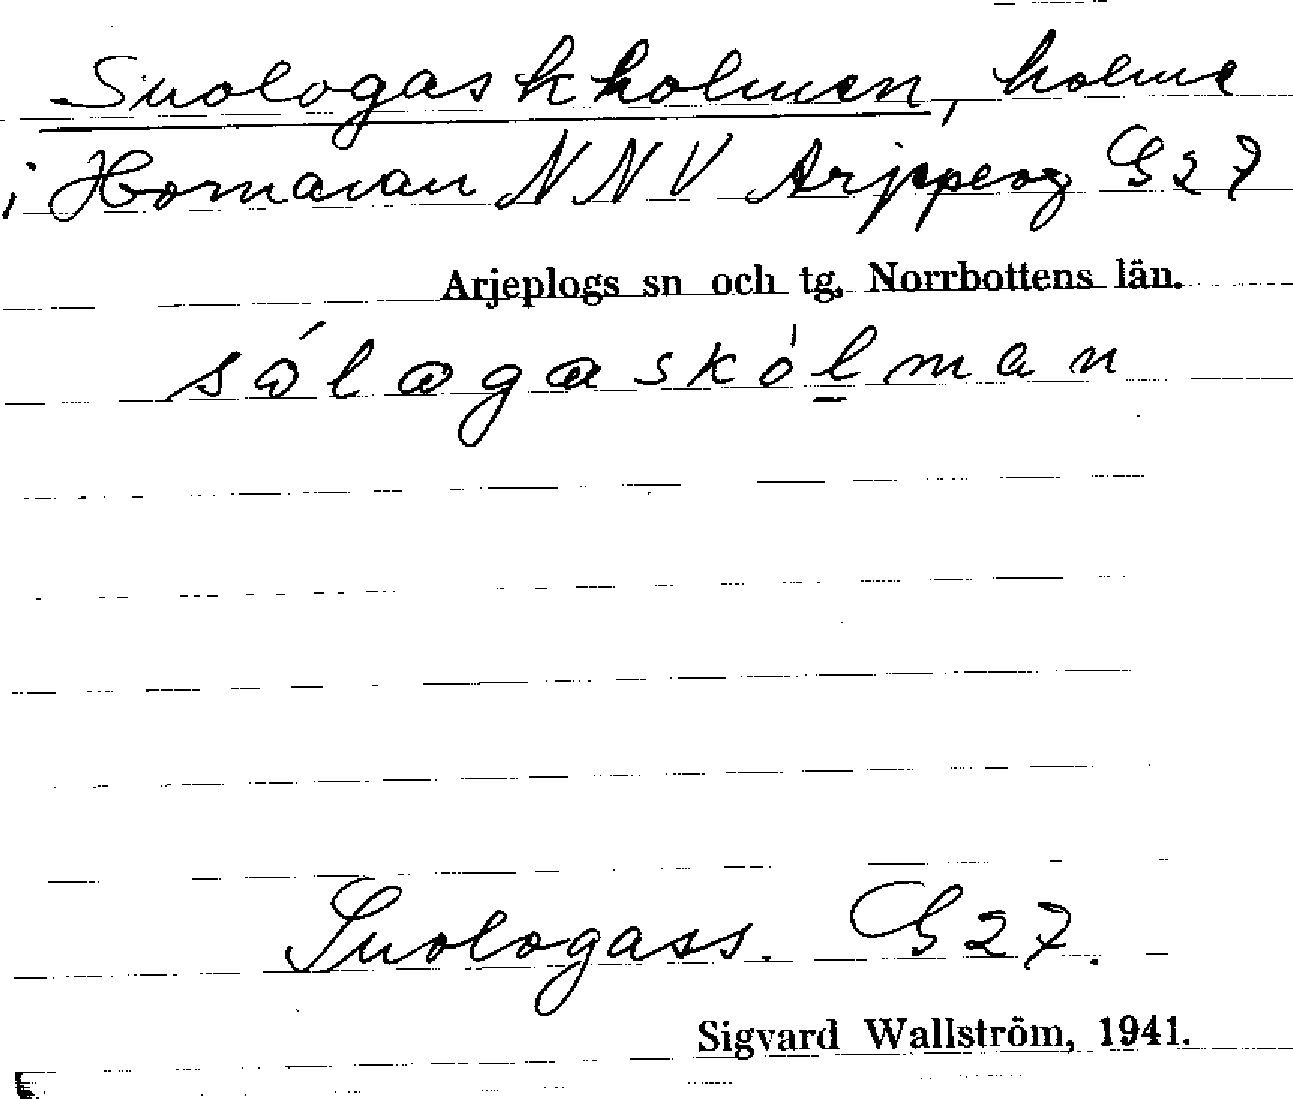 Suologaskholmen, holme
i Hornavan NNV Arjepperg G27
Arjeplogs sn och tg, Norrbottens län.
sólogaskólman
Suologass. G27.
Sigvard Wallström, 1941.